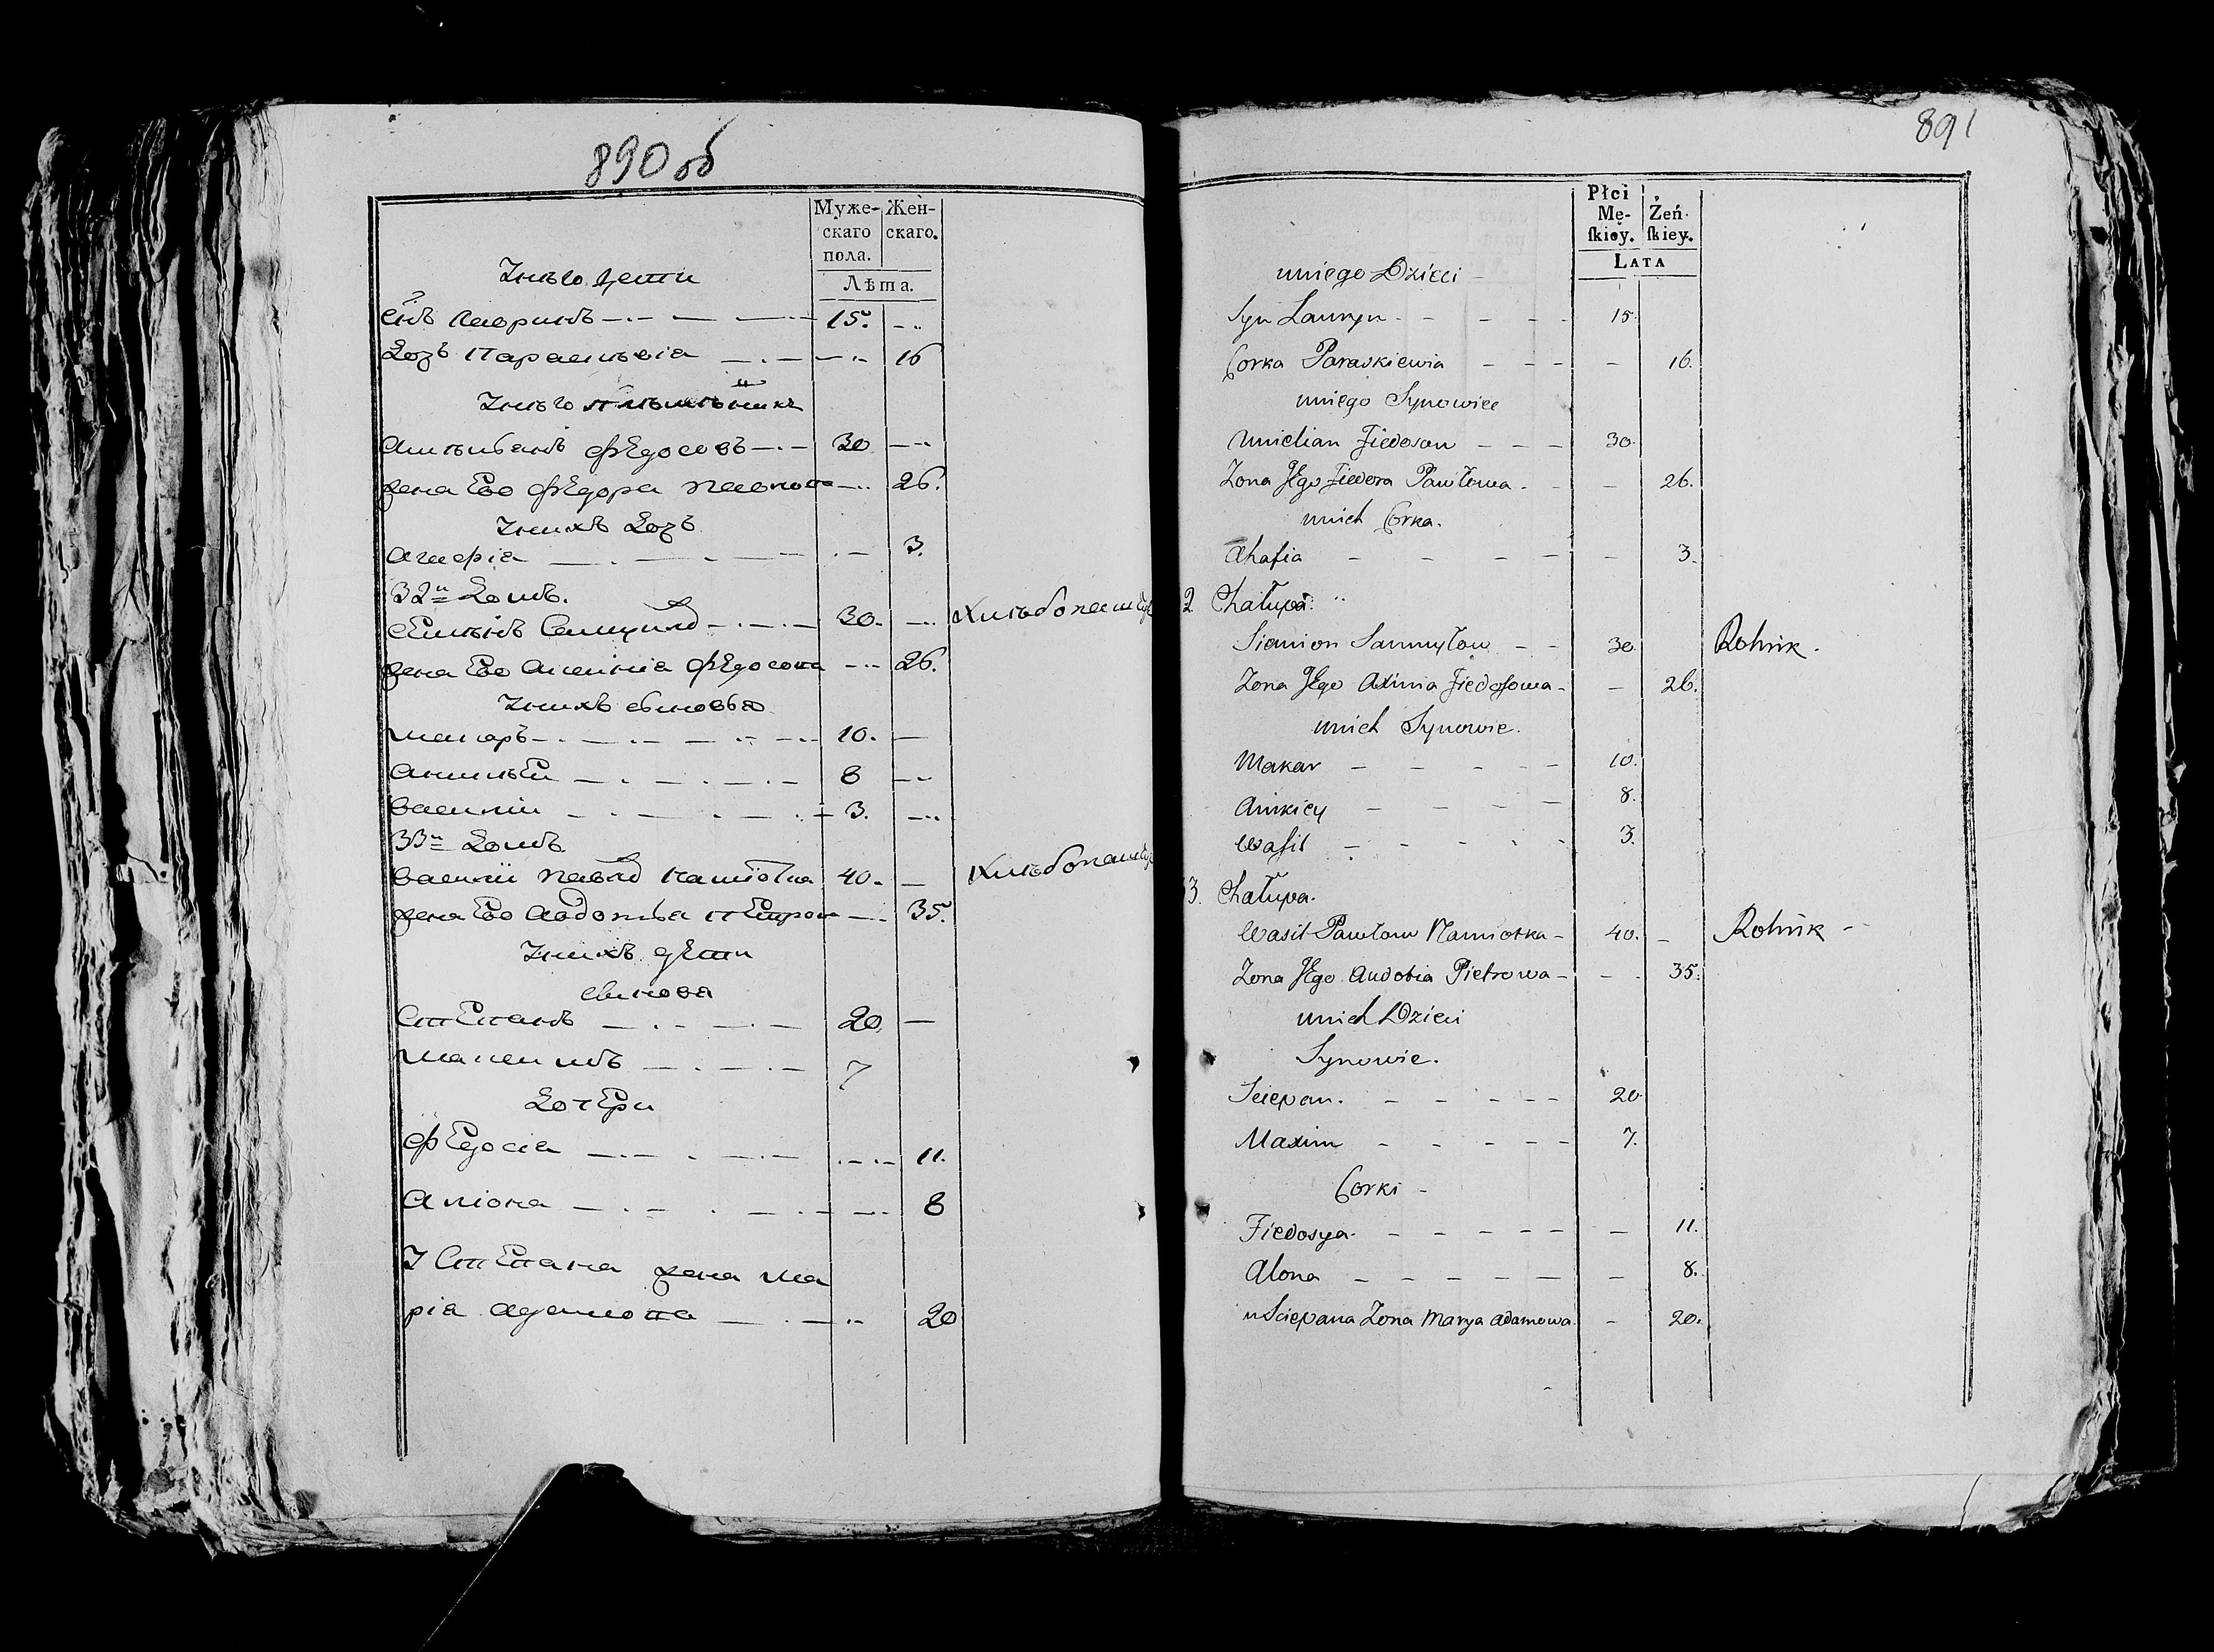 890 об
Муже- Жен-
скаго скаго.
пола.
Лѣта.
Унѣго дети
Снъ Лавринъ 15.
Доч Параскевіа 16
Унѣго
Федосовъ 30
жена Ево Федора Павлова 26.
Унихъ Доч
Агафіа 3.
32й Домъ.
Семіонъ Самуилов 30. Хлѣбопаш
жена Ево Аксиніа Федосова 26.
Унихъ сыновья
Макаръ 10.
Аникѣй 8
Василій 3.
33й Домъ
Василій Павлов 40. Хлѣбопаш
жена Ево Авдотья Петров 35.
Унихъ дети
сынова
Степанъ 20
Максимъ 7
Дочери
Федосіа 11.
Аліона 8
У Степана жена Ма
ріа Адамова 20
891
Płci Żeń-
Mę- ſkiey.
ſkiey.
LATA
uniego Dzieci
Syn Lauryn 15.
Corka Paraskiewia 16.
uniego Synowiec
Fiedosow 30.
Zona Jego Fiedora Pawłowa 26.
unich Corka.
Ahafia 3.
2 Chałupa.
Siemion Samuyłow 30. Rolnik.
Zona Jego Axinia Fiedosowa 26.
unich Synowie.
Makar 10.
Anikiey 8.
Wasil 3.
3. Chałupa.
Wasil Pawłow Namiotka 40. Rolnik
Zona Jego Audotia Pietrowa 35.
unich Dzieci
Synowie.
Sciepan. 20.
Maxim 7.
Corki
Fiedosya 11.
Alona 8.
u Sciepana Zona Marya Adamowa 20.